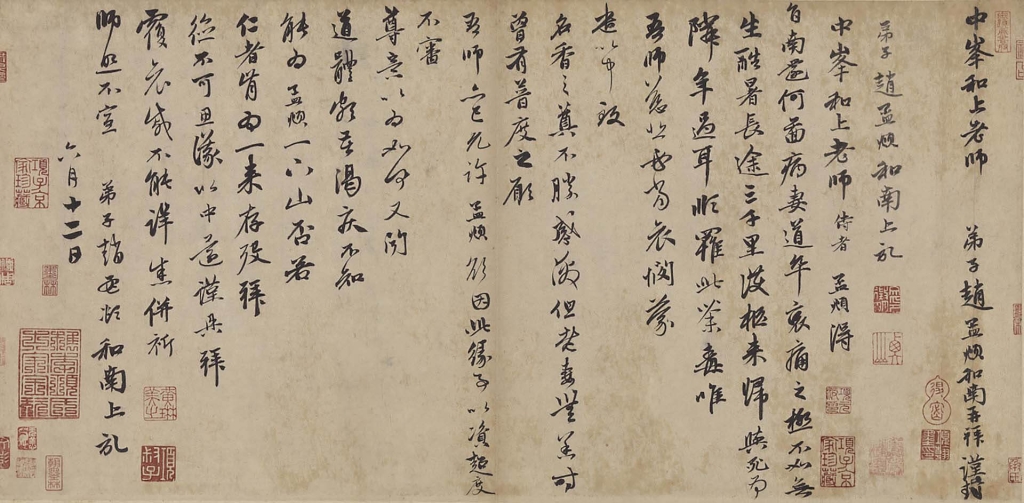 中峯和上老師 弟子趙孟頫和南再拜謹封
弟子趙孟頫和南上記
中峯和上老師侍者孟頫得
旨南還何啚病妻道卒哀痛之極不如無
生酷暑長途三千里護柩來歸與死為
隣年過耳順罹此荼毒唯
吾師慈悲必當哀憫蒙
遣以中致
名香之奠不勝感激但老妻無恙時
曾有普度之願
吾師亦已允許孟頫欲因此緣事以資超度
不審
尊意以為如何又聞
道體頗苦渴疾不知
能為孟頫一下山否若
仁者肯為一來存歿拜
德不可思議以中還謹再拜
覆哀感不能詳悉併祈
師照不宣 弟子趙孟頫和南上記
六月十二日
項子京家珍藏
項子京家珍藏